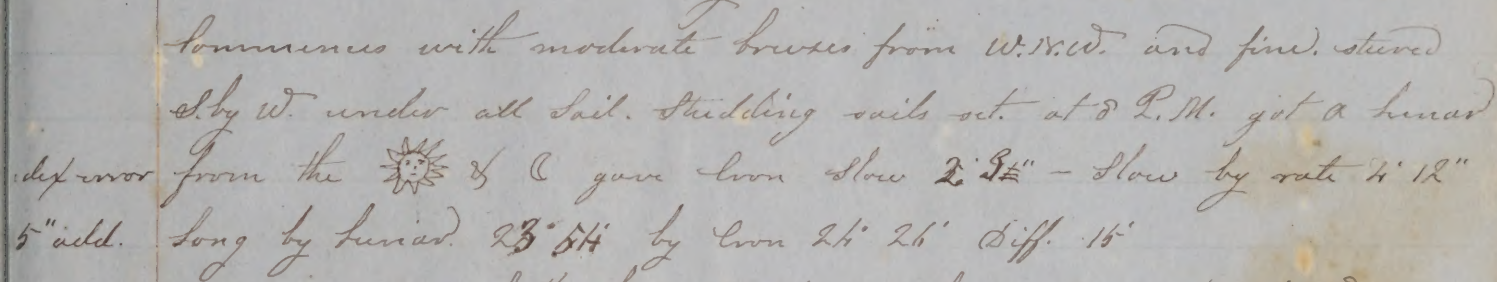 Commences with moderate breezes from W.N.W. and fine. steered
S. by W. under all Sail. Studding sails set. at 8 P.M. got a Lunar
dex error from the ☀ & ☾ gave Cron Slow 2' – Slow by rate 4' 12"
5" add. Long by Lunar. 23° 54' by Cron 24° 26' Diff. 15'